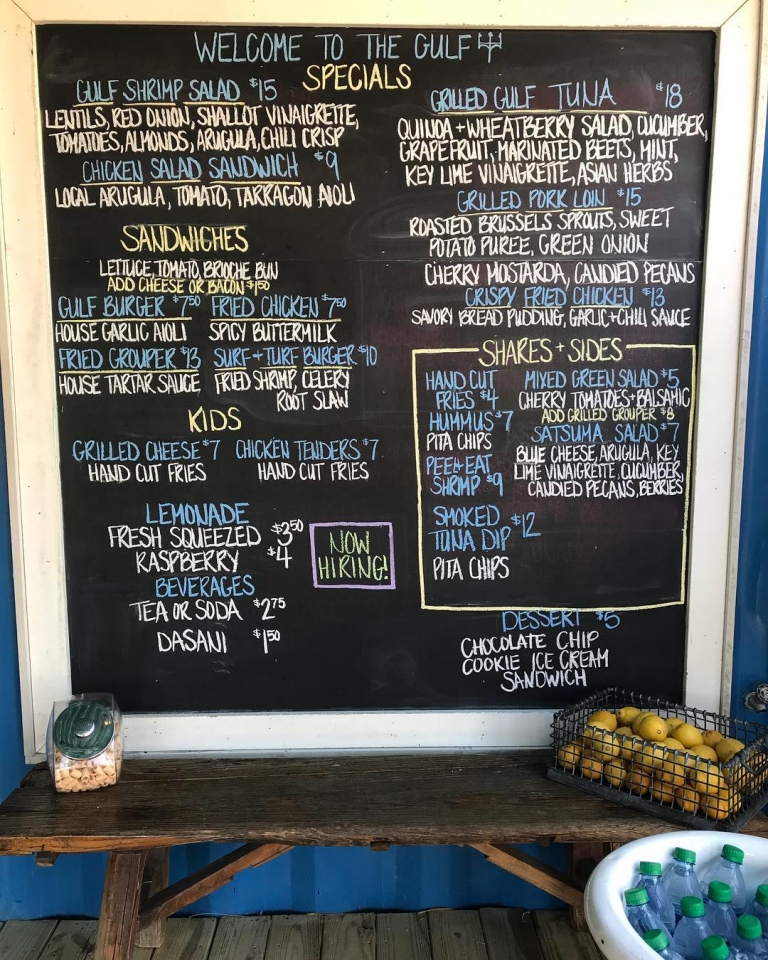 WELCOME TO THE GULF
SPECIALS
GULF SHRIMP SALAD $15
LENTILS, RED ONION, SHALLOT VINAIGRETTE,
TOMATOES, ALMONDS, ARUGULA, CHILI CRISP
CHICKEN SALAD SANDWICH $9
LOCAL ARUGULA, TOMATO, TARRAGON AIOLI
SANDWICHES
LETTUCE, TOMATO, BRIOCHE BUN
ADD CHEESE OR BACON $1.50
GULF BURGER $7.50 FRIED CHICKEN $7.50
HOUSE GARLIC AIOLI SPICY BUTTERMILK
FRIED GROUPER $13 SURF + TURF BURGER $10
HOUSE TARTAR SAUCE FRIED SHRIMP, CELERY
ROOT SLAW
KIDS
GRILLED CHEESE $7 CHICKEN TENDERS $7
HAND CUT FRIES HAND CUT FRIES
LEMONADE
FRESH SQUEEZED $3.50
RASPBERRY $4
BEVERAGES
TEA OR SODA $2.75
DASANI $1.50
NOW
HIRING!
GRILLED GULF TUNA $18
QUINOA + WHEATBERRY SALAD, CUCUMBER,
GRAPEFRUIT, MARINATED BEETS, MINT,
KEY LIME VINAIGRETTE, ASIAN HERBS
GRILLED PORK LOIN $15
ROASTED BRUSSELS SPROUTS, SWEET
POTATO PUREE, GREEN ONION
CHERRY MOSTARDA, CANDIED PECANS
CRISPY FRIED CHICKEN $13
SAVORY BREAD PUDDING, GARLIC + CHILI SAUCE
SHARES + SIDES
HAND CUT
FRIES $4
HUMMUS $7
PITA CHIPS
PEEL + EAT
SHRIMP $9
SMOKED
TUNA DIP $12
PITA CHIPS
MIXED GREEN SALAD $5
CHERRY TOMATOES + BALSAMIC
ADD GRILLED GROUPER $8
SATSUMA SALAD $7
BLUE CHEESE, ARUGULA, KEY
LIME VINAIGRETTE, CUCUMBER,
CANDIED PECANS, BERRIES
DESSERT $5
CHOCOLATE CHIP
COOKIE ICE CREAM
SANDWICH